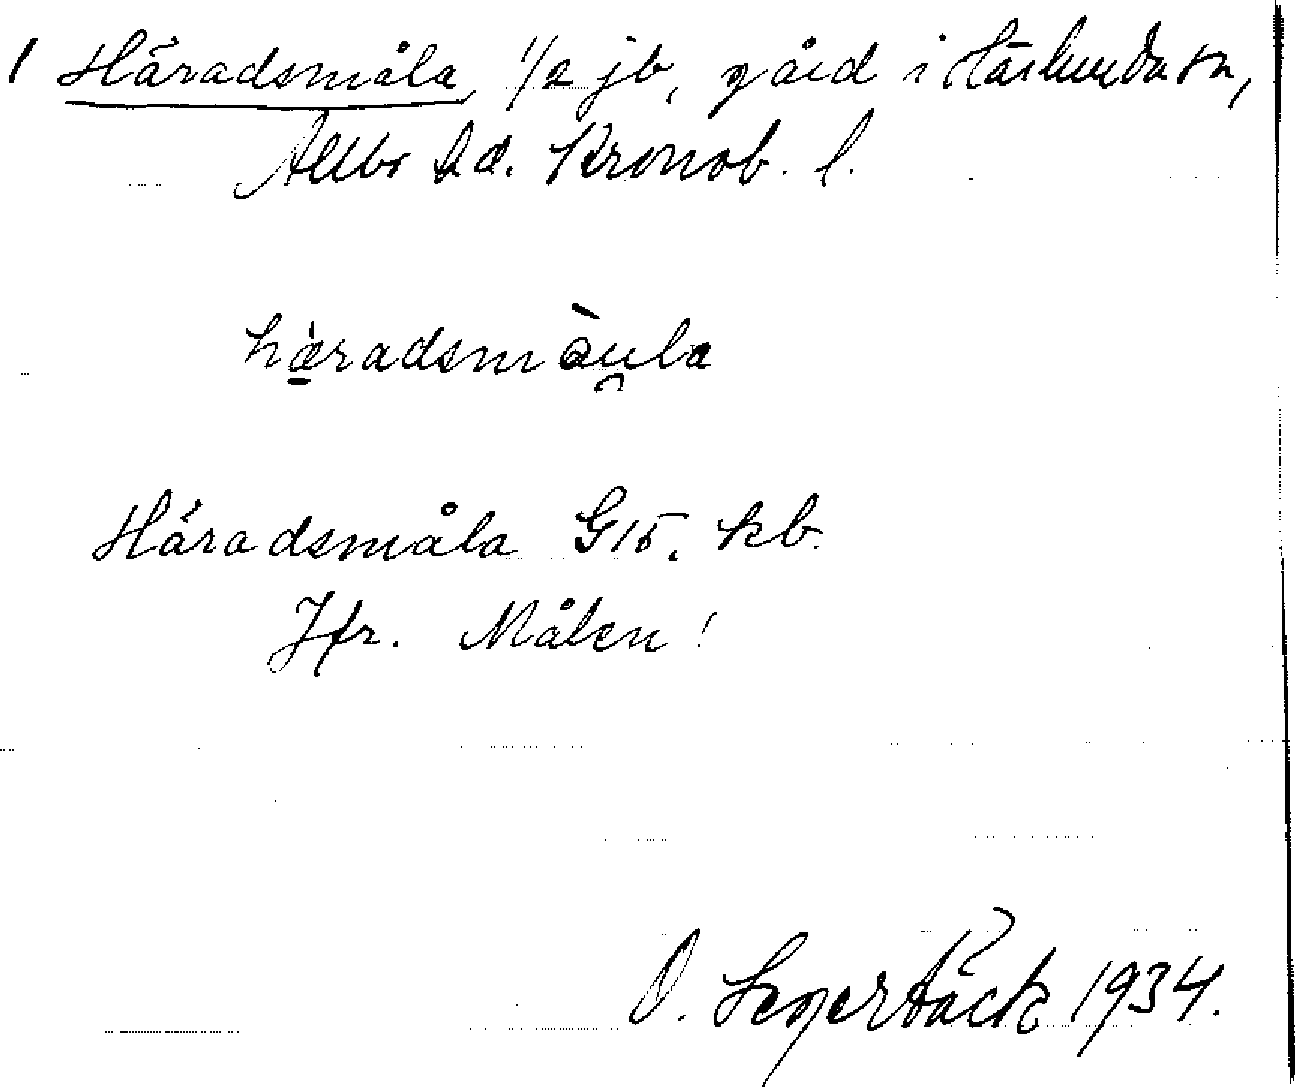 1 Häradsmåla, 1/2 jb, gård i Härlunda sn,
Allbo hd. Kronob. l.
hæ̀radsmòu̯la
Häradsmåla G15. kb.
Jfr. Målen!
O. Segerbäck 1934.